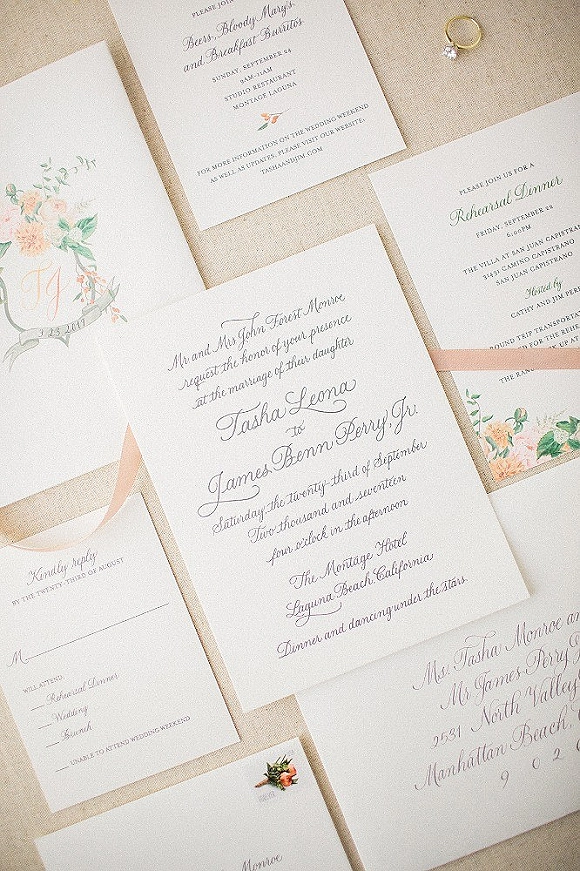 PLEASE JOIN
Beers, Bloody Mary's,
and Breakfast Burritos
SUNDAY, SEPTEMBER 24
9AM-11AM
STUDIO RESTAURANT
MONTAGE LAGUNA
FOR MORE INFORMATION ON THE WEDDING WEEKEND
AS WELL AS UPDATES, PLEASE VISIT OUR WEBSITE:
TASHAANDJIM.COM
TJ
9.23.2017
PLEASE JOIN US FOR A
Rehearsal Dinner
FRIDAY, SEPTEMBER 22
6:00PM
THE VILLA AT SAN JUAN CAPISTRA
31431 CAMINO CAPISTRANO
SAN JUAN CAPISTRANO
Hosted by
CATHY AND JIM PER
ROUND TRIP TRANSPORTAT
FOR THE REHE
UP AT
THE RAN
Mr and Mrs John Forest Monroe
request the honor of your presence
at the marriage of their daughter
Tasha Leona
to
James Benn Perry, Jr.
Saturday the twenty-third of September
Two thousand and seventeen
four o'clock in the afternoon
The Montage Hotel
Laguna Beach, California
Dinner and dancing under the stars
Kindly reply
BY THE TWENTY-THIRD OF AUGUST
M
WILL ATTEND
Rehearsal Dinner
Wedding
Brunch
UNABLE TO ATTEND WEDDING WEEKEND
Ms. Tasha Monroe an
Mr James Perry, J
2531 North Valley
Manhattan Beach, C
9 0 2
Monroe